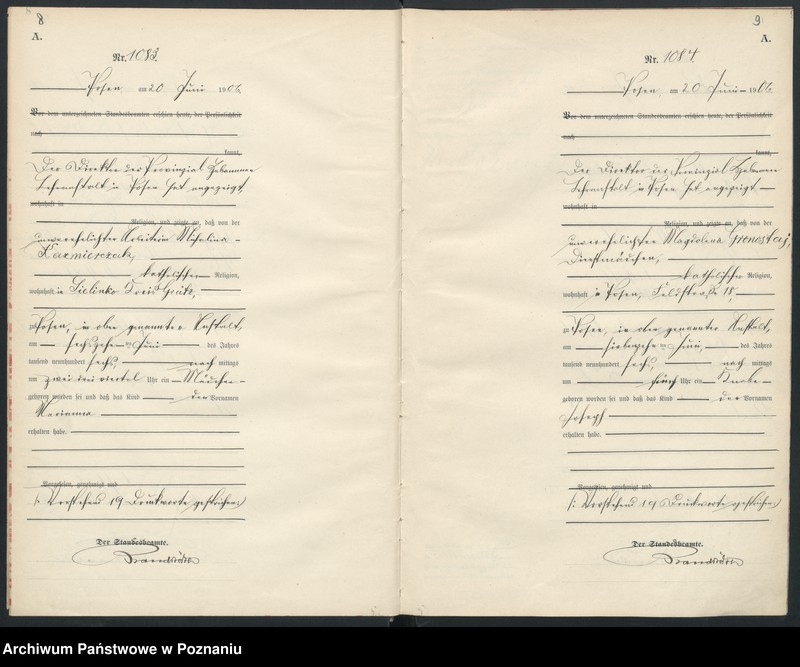 8
A.
Nr. 1083.
Posen, am 20 Juni 1906
Vor dem unterzeichneten Standesbeamten erschien heute, der Persönlichkeit
nach
kannt,
Der Direktor der Provinzial Hebammen
Lehranstalt in Posen hat angezeigt,
wohnhaft in
Religion, und zeigte an, daß von der
unverehelichten Arbeiterin
Kazmierczak,
katholischer Religion,
wohnhaft in Sielinko Kreis Grätz,
zu Posen, in oben genannter Anstalt,
am sechszehnten Juni des Jahres
tausend neunhundert sechs, nach mittags
um zwei drei viertel Uhr ein Mädchen
geboren worden sei und daß das Kind den Vornamen
Marianna
erhalten habe.
Vorgelesen, genehmigt und
/: Vorstehend 19 Druckworte gestrichen :/
Der Standesbeamte.
9
A.
Nr. 1084.
Posen, am 20 Juni 1906
Vor dem unterzeichneten Standesbeamten erschien heute, der Persönlichkeit
nach
kannt,
Der Direktor der Provinzial Hebammen
Lehranstalt in Posen hat angezeigt,
wohnhaft in
Religion, und zeigte an, daß von der
unverehelichten Magdalena Gronostaj,
Dienstmädchen,
katholischer Religion,
wohnhaft in Posen, Feldstraße 18,
zu Posen, in oben genannter Anstalt,
am siebzehnten Juni, des Jahres
tausend neunhundert sechs, nach mittags
um fünf Uhr ein Knabe
geboren worden sei und daß das Kind den Vornamen
Joseph
erhalten habe.
Vorgelesen, genehmigt und
/: Vorstehend 19 Druckworte gestrichen :/
Der Standesbeamte.
Archiwum Państwowe w Poznaniu